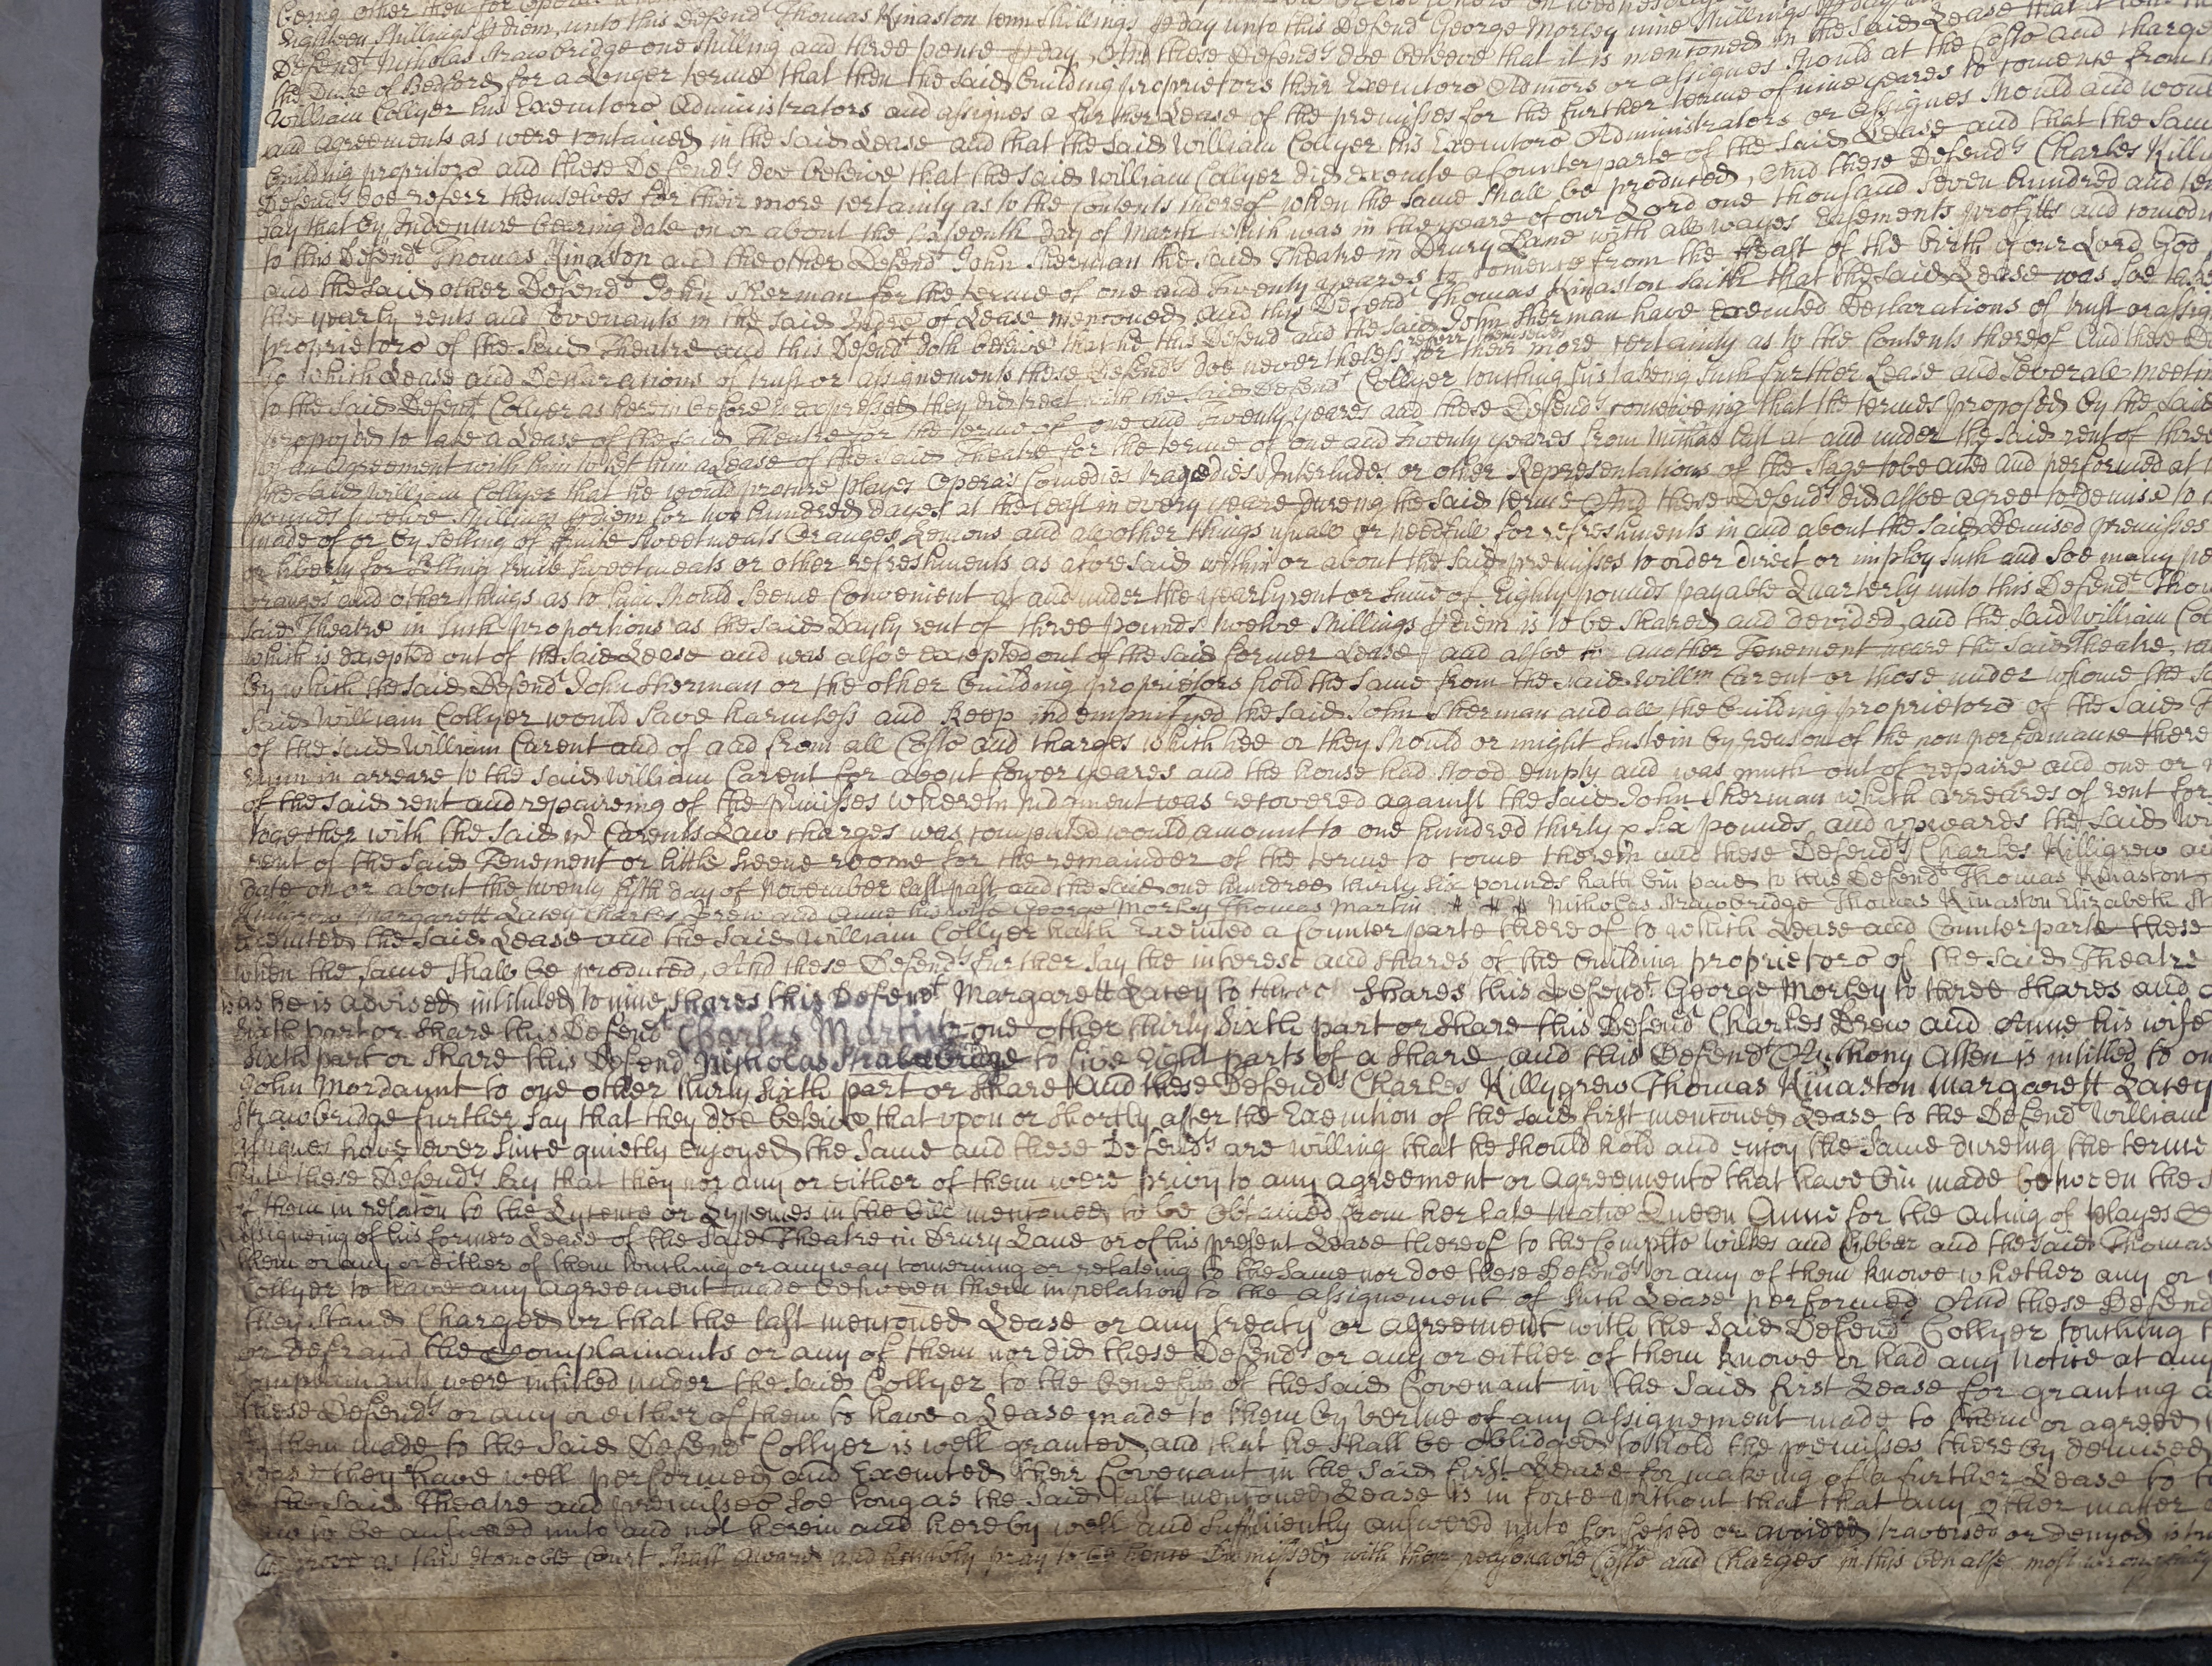 Eighteen Shillings p diem, unto this Defendt Thomas Kinaston tenn Shillings p day unto this Defendt George Morley nine Shillings p day
Defendt Nicholas Strawbridge one shilling and three pence p day, And these Defendts doe beleeve that it is mentoned in the said Lease that
the Duke of Bedford for a Longer terme that then the said building proprietors their Executors Admors or assignes should at the Costs and charge
William Collyer his Executors Administrators and assignes a further Lease of the premisses for the further terme of nine yeares to comence from
and agreements as were contained in the said Lease and that the said William Collyer his Executors Administrators or assignes should and would
building propritors and these Defendts doe beleive that the said William Collyer did execute a Counterparte of the said Lease and that the same
Defendts doe referr themselves for their more certainty as to the Contents thereof when the same shall be produced, And these Defendts Charles Killy
say that by Indenture bearing date on or about the day of March which was in the yeare of our Lord one thousand seven hundred and
to this Defendt Thomas Kinaston and the other Defendt John Sherman the said Theatre in Drury Lane with all wayes Easements profitts and comodi
and the said other Defendt John Sherman for the terme of one and twenty yeares to comence from the Feast of the birth of our Lord God
the yearly rents and Covenants in the said Indre of Lease mentoned and this Defendt Thomas Kinaston saith that the said Lease was soe taken
proprietors of the said Theatre and this Defendt doth beleive that he this Defend and the said John Sherman have executed Declarations of trust or assig
to which Lease and Declarations of trust or assignements these Defendts doe nevertheless referr themselves for their more certainty as to the Contents thereof And these De
to the said Defendt Collyer as herein before is expressed they did treat with the said Defendt Collyer touching his takeing such further Lease and severall meetin
proposed to take a Lease of the said Theatre for the terme of one and twenty yeares and these Defendts conceiveing that the termes proposed by the said
of an agreement with him to let him a Lease of the said Theatre for the terme of one and twenty yeares from Michas last at and under the said rent of three
the said William Collyer that he would procure playes Operas Comedies tragedies Interludes or other Representations of the stage to be acted and performed at
pounds twelve shillings p diem for two hundred dayes at the least in every yeare dureing the said terme And these Defendts did alsoe agree to demise to
made of or by selling of fruite sweetmeats Oranges Lemons and all other things usuall or needfull for refreshments in and about the said demised premisses
or liberty for selling fruite sweetmeats or other refreshments as aforesaid within or about the said premisses to order direct or imploy such and soe many
oranges and other things as to him should seeme Convenient at and under the yearly rent or sume of Eighty pounds payable Quarterly unto this Defendt Tho
said Theatre in such proportions as the said Dayly rent of three pounds twelve shillings p diem is to be shared and devided, and the said William Col
which is excepted out of the said Lease and was alsoe excepted out of the said former Lease and alsoe to another Tenement neare the said Theatre,
by which the said Defendt John Sherman or the other building proprietors hold the same from the said Willm Carent or those under whome the
said William Collyer would save harmless and keep indempnifyed the said John Sherman and all the building proprietors of the said
of the said William Carent and of and from all Costs and charges which hee or they should or might sustein by reason of the non performance there
runn in arreare to the said William Carent for about fower yeares and the house had stood empty and was much out of repaire and one or
of the said rent and repaireing of the premisses wherein Judgment was recovered against the said John Sherman which arreares of rent for
together with the said Mr Carents Law charges was computed would amount to one hundred thirty & six pounds and upwards the said
rent of the said Tenement or little sceene roome for the remainder of the terme to come therein and these Defendts Charles Killigrew
date on or about the twenty fifth day of November last past and the said one hundred thirty six pounds hath bin paid to this Defendt Thomas Kinaston
Killigrew Margarett Lacey Charles Drew and Anne his wife George Morley Thomas Martin Nicholas Strawbridge Thomas Kinaston Elizabeth
executed the said Lease and the said William Collyer hath Executed a Counterparte thereof to which Lease and Counterparte these
when the same shall be produced, And these Defendts further say the interest and shares of the building proprietors of the said Theatre
as he is advised intituled to nine shares this Defendt Margarett Lacey to three shares this Defendt George Morley to three shares and
sixth part or share this Defendt Charles Martin to one other thirty sixth part or share this Defendt Charles Drew and Anne his wife
sixth part or share this Defendt Nicholas Strawbridge to five Eight parts of a share and this Defendt Anthony Allen is intitled to
John Mordaunt to one other thirty sixth part or share And these Defendts Charles Killygrew Thomas Kinaston Margarett Lacey
Strawbridge further say that they doe beleive that upon or shortly after the Execution of the said first mentoned Lease to the Defendt William
assignes have ever since quietly enjoyed the same and these Defendts are willing that he should hold and enjoy the same dureing the terme
these Defendts say that they nor any or either of them were privy to any agreement or agreements that have bin made between the
of them in relaton to the Lycence or Lycences in the bill mentoned to be obtained from her late Matie Queen Anne for the acting of playes
assigneing of his former Lease of the said Theatre in Drury Lane or of his present Lease thereof to the Complts Wilkes and Cibber and the said Thomas
them or any or either of them touching or any way concerning or relateing to the same nor doe these Defendts or any of them knowe whether any or
Collyer to have any agreement made between them in relation to the assignement of such Lease performed And these Defend
they stand Charged or that the last mentoned Lease or any treaty or agreement with the said Defendt Collyer touching
or defraud the Complainants or any of them nor did these Defendts or any or either of them knowe or had any notice at any
Complainants were intitled under the said Collyer to the benefit of the said Covenant in the said first Lease for granting
these Defendts or any or either of them to have a Lease made to them by vertue of any assignement made to them or agreed
by them made to the said Defendt Collyer is well granted and that he shall be obliidged to hold the premisses thereby demised
Lease they have well performed and Executed their Covenant in the said first Lease for makeing of a further Lease to
the said Theatre and premisses soe long as the said last mentoned Lease is in force without that that any other matter
to be answered unto and not herein and hereby well and sufficiently answered unto confessed or avoided traversed or denyed is
prove as this Honoble Court shall award and humbly pray to be hence Dismissed with their reasonable Costs and Charges in this behalfe most wrongfully